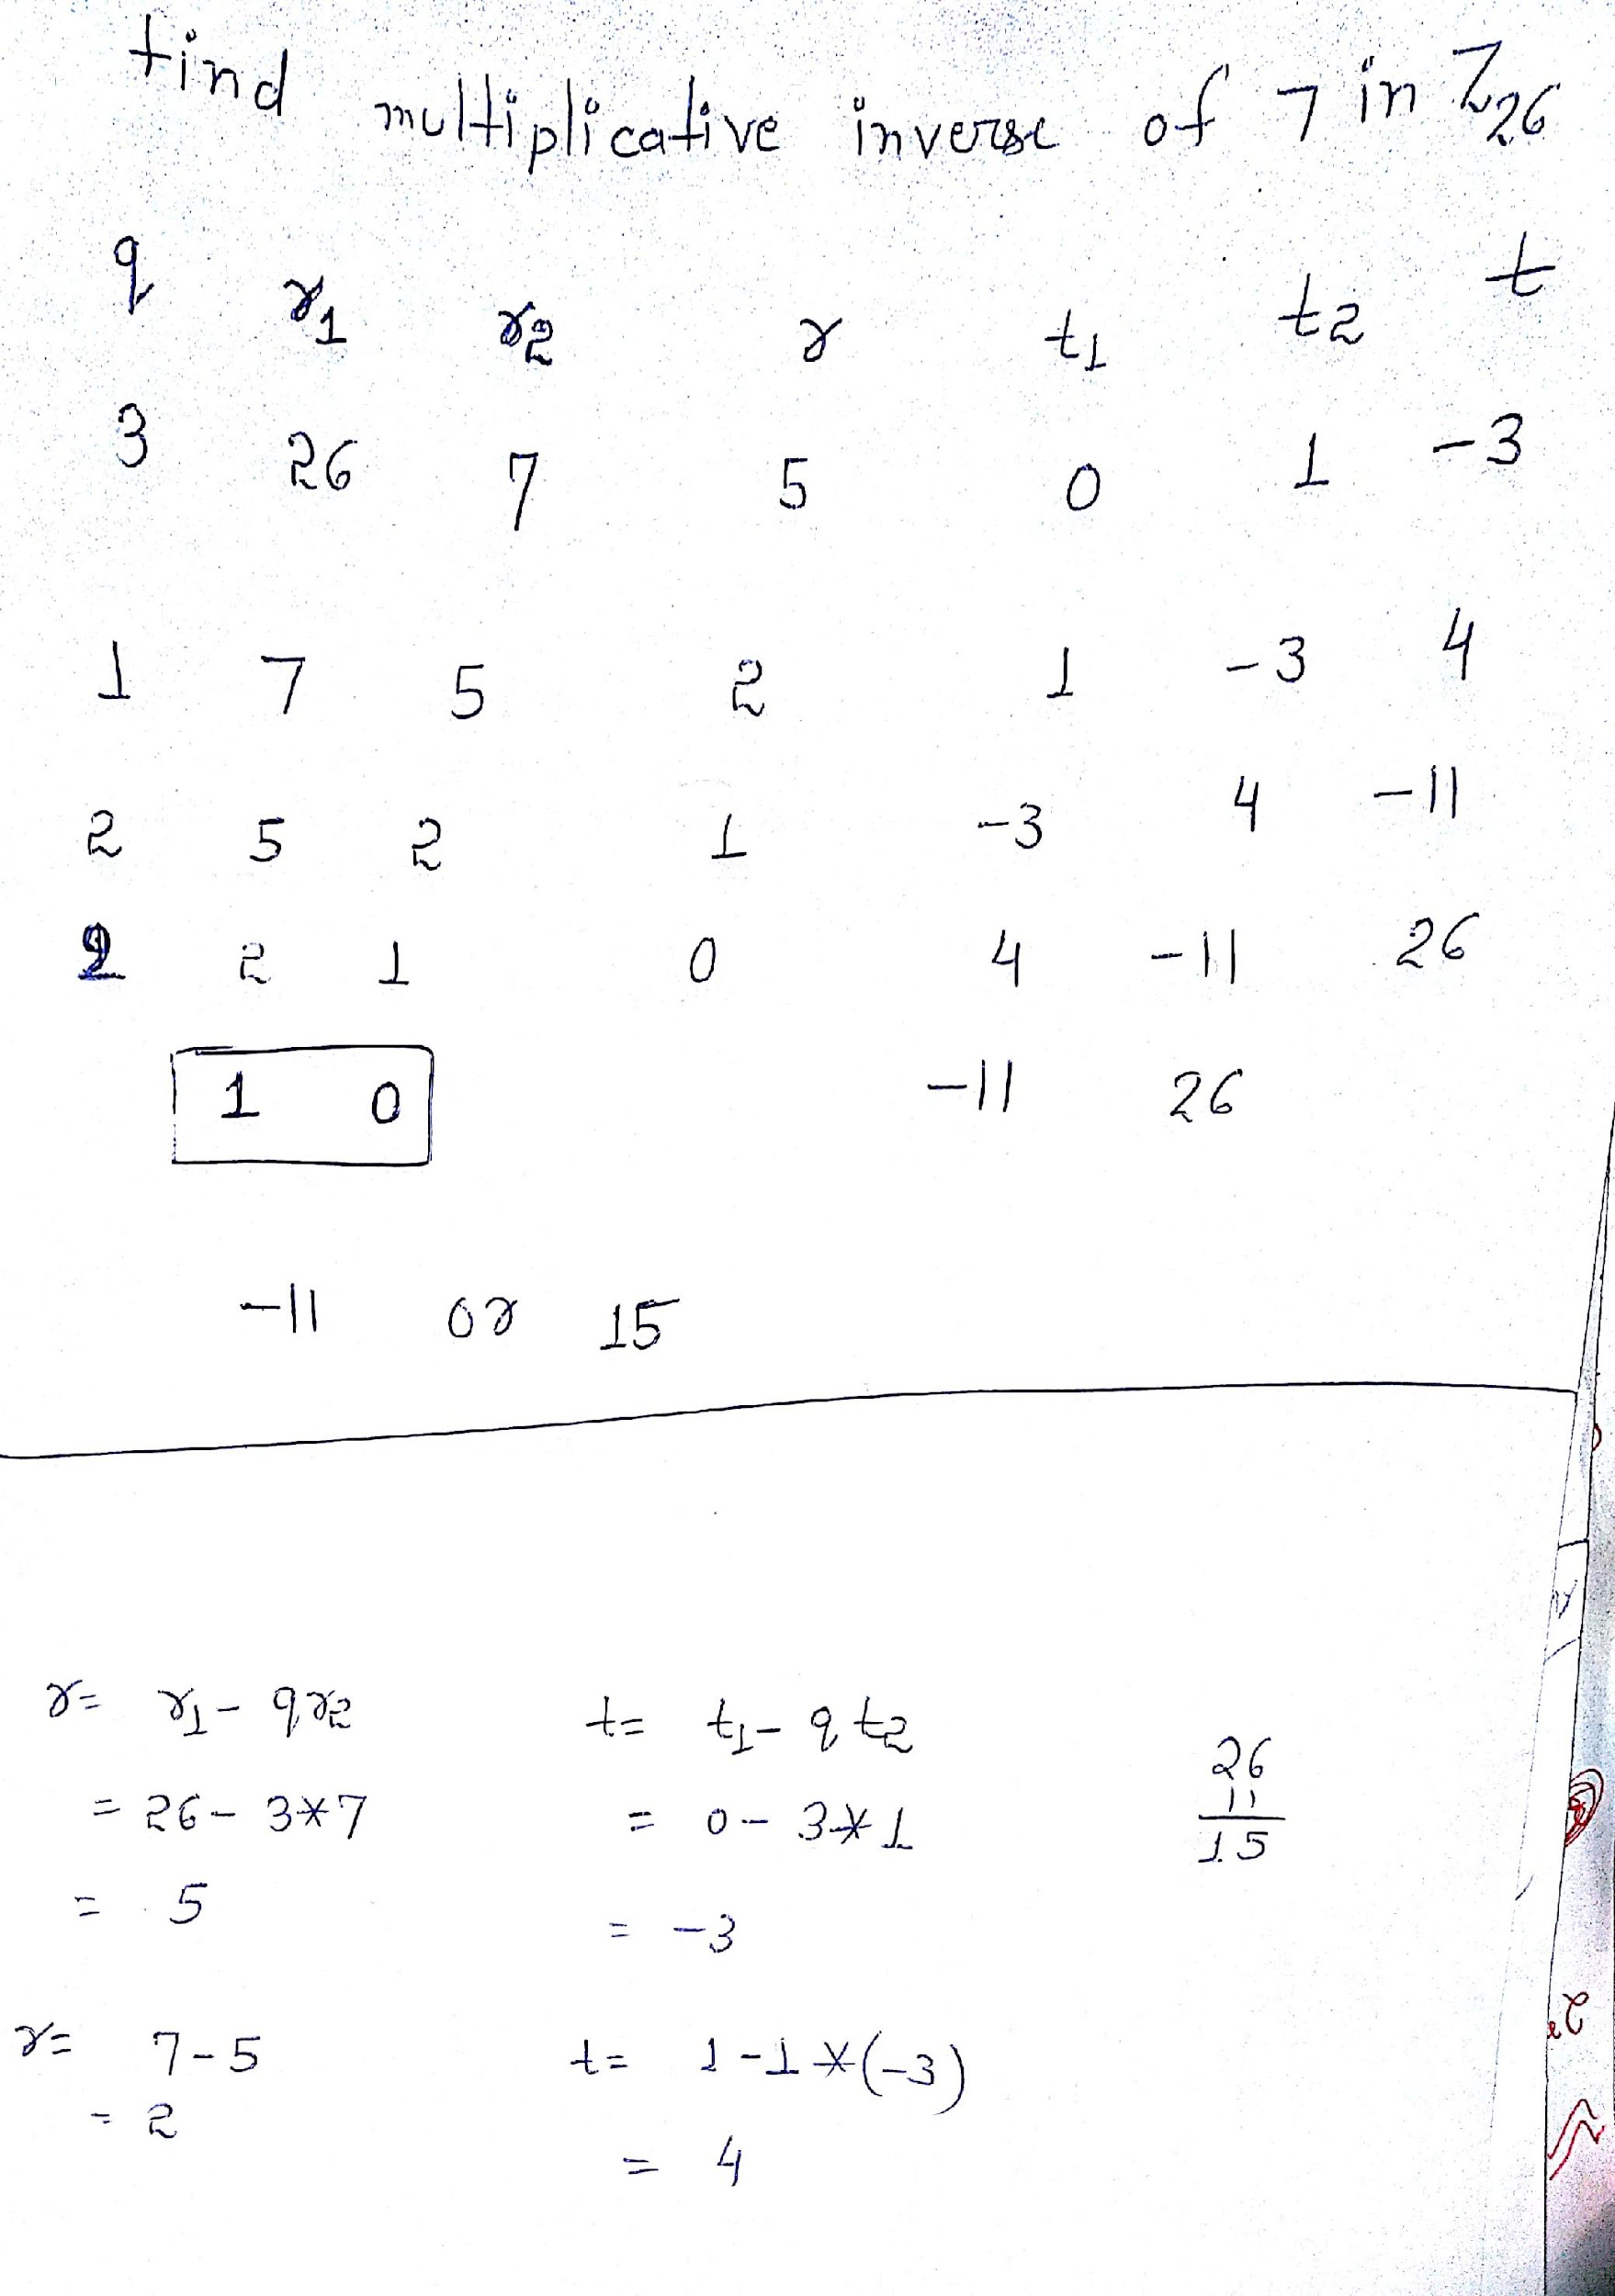 find multiplicative inverse of 7 in Z26
q r1 r2 r t1 t2 t
3 26 7 5 0 1 -3
1 7 5 2 1 -3 4
2 5 2 1 -3 4 -11
2 2 1 0 4 -11 26
1 0 -11 26
-11 or 15
r= r1- qr2 t= t1- q t2 26
= 26- 3*7 = 0- 3*1 11
= 5 = -3 15
r= 7-5 t= 1-1*(-3)
= 2 = 4